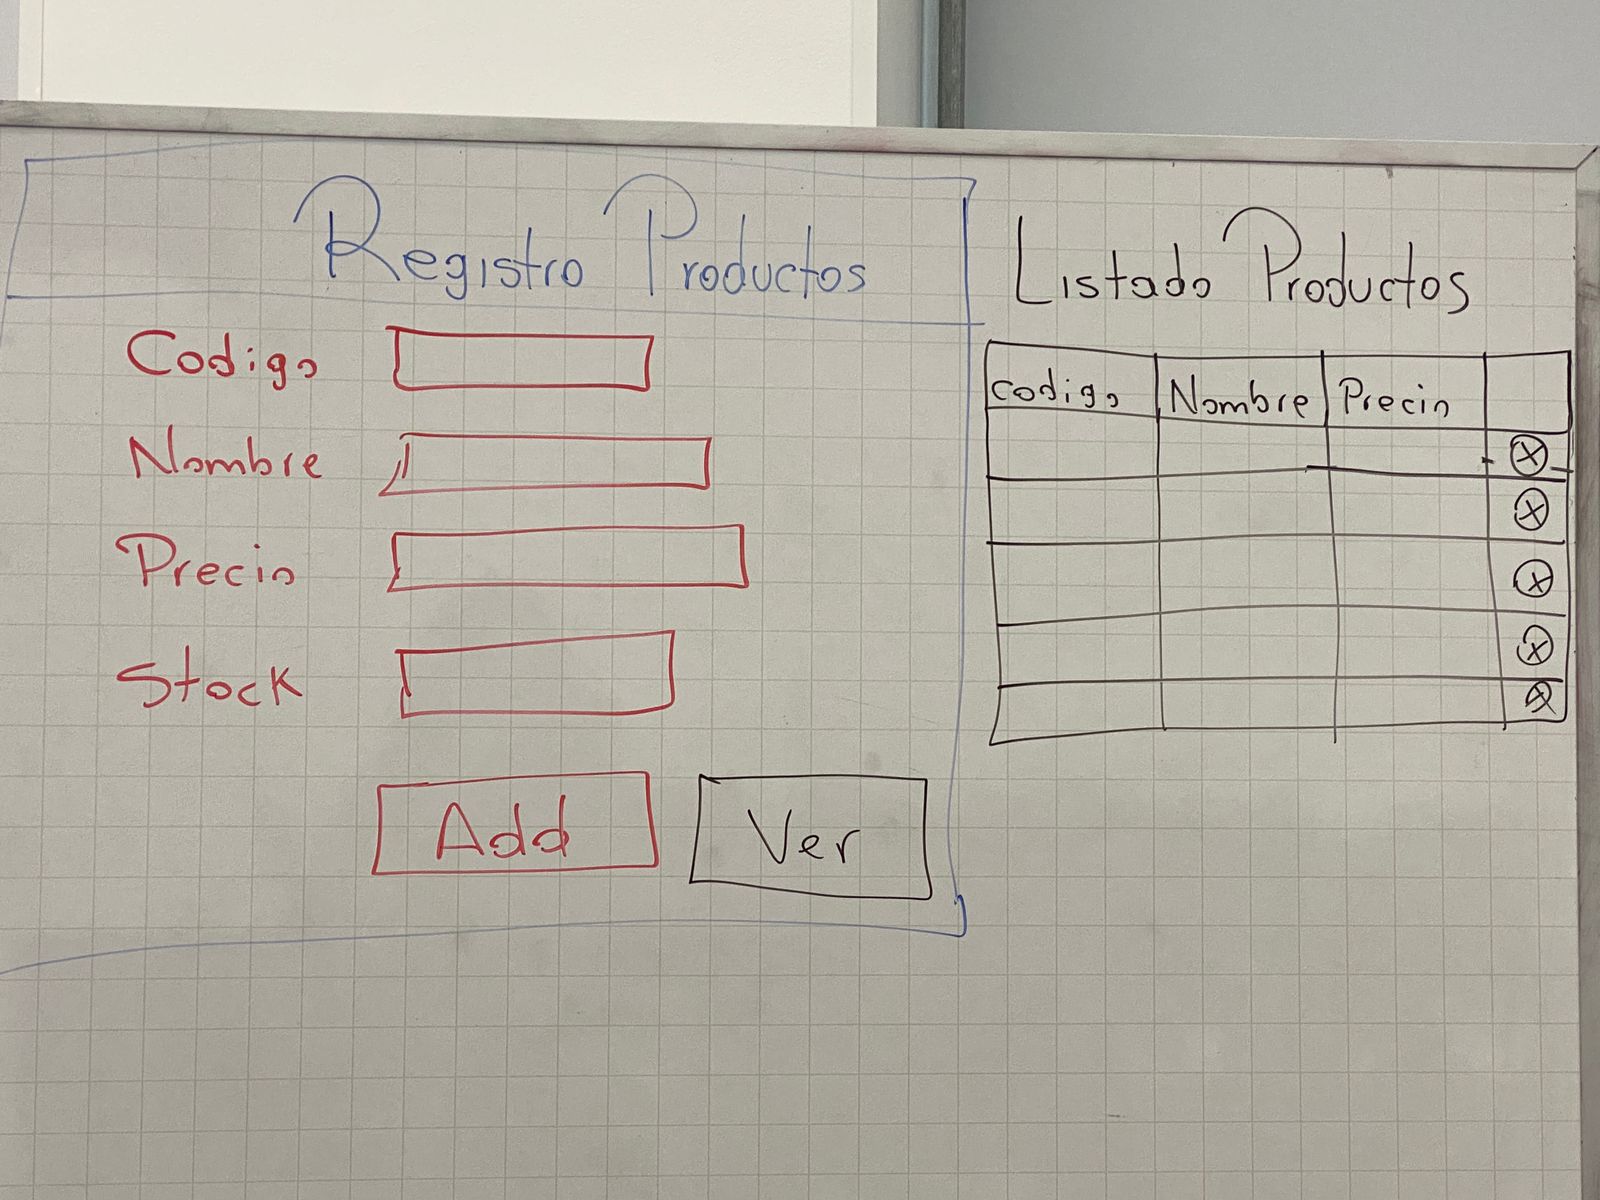 Registro Productos
Codigo
Nombre
Precio
Stock
Add
Ver
Listado Productos
codigo Nombre Precio